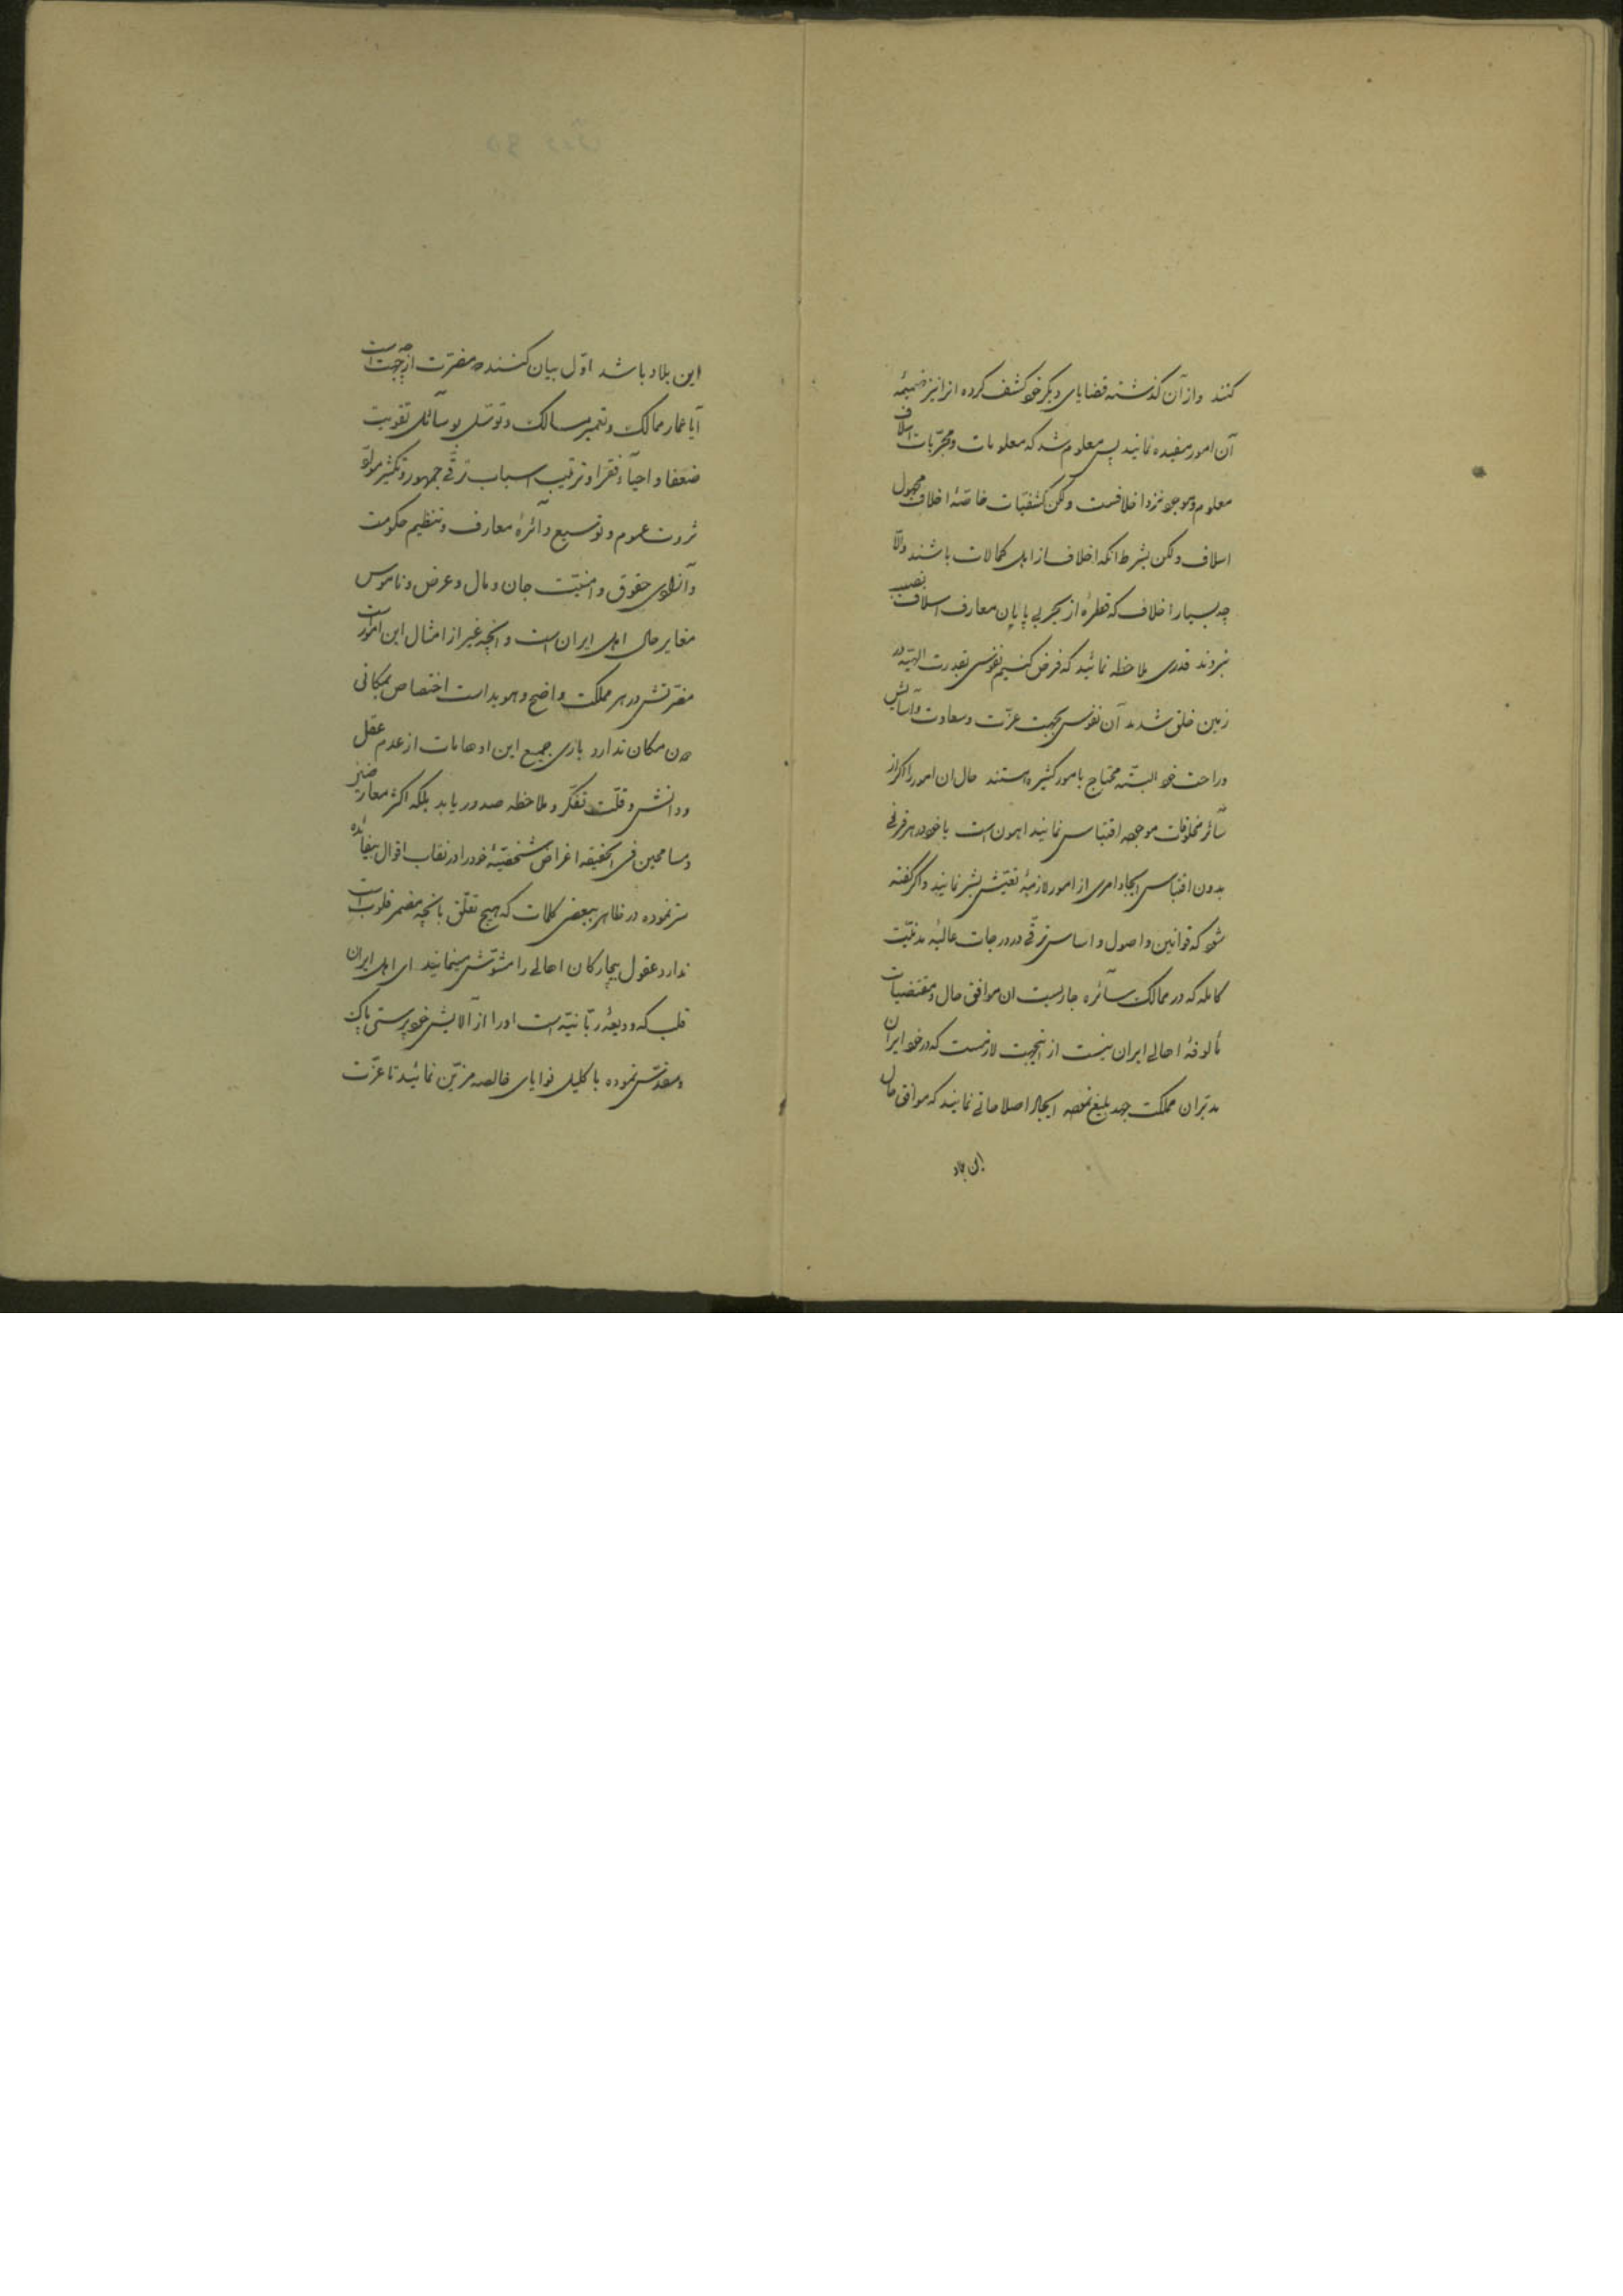 کنند و از آن گذشته قضایای دیگر خود کشف کرده انرا نیز ضمیمهٔ
آن امور مفیده نمایند پس معلوم شد که معلومات و مجرّبات اسلاف
معلوم و موجود نزد اخلافست ولکن کشفیّات خاصّهٔ اخلاف مجهول
اسلاف ولکن بشرط انکه اخلاف از اهل کمالات باشند و الّا
چه بسیار اخلاف که قطرهٔ از بحر بی پایان معارف اسلاف نصیب
نبردند قدری ملاحظه نمائید که فرض کنیم نفوسی بقدرت الهیّه در
زمین خلق شدند آن نفوس بجهت عزّت و سعادت و آسایش
و راحت خود البتّه محتاج بامور کثیره هستند حال ان امور را اگر از
سائر مخلوقات موجوده اقتباس نمایند اهون است یا خود در هر قرنی
بدون اقتباس ایجاد امری از امور لازمهٔ تعیّش بشر نمایند و اگر گفته
شود که قوانین و اصول و اساس ترقّی در درجات عالیهٔ مدنیّت
کامله که در ممالک سائره جاریست ان موافق حال و مقتضیات
مألوفهٔ اهالی ایران نیست از اینجهت لازمست که در خود ایران
مدبّران مملکت جهد بلیغ نموده ایجاد اصلاحاتی نمایند که موافق حال
این بلاد
این بلاد باشد اوّل بیان کنند که مضرّت از چه جهت است
آیا عمار ممالک و تعمیر مسالک و توسّل بوسائل تقویت
ضعفا و احیآء فقرا و ترتیب اسباب ترقّی جمهور و تکثیر موادّ
ثروت عموم و توسیع دائرهٔ معارف و تنظیم حکومت
و آزادی حقوق و امنیّت جان و مال و عرض و ناموس
مغایر حال اهل ایران است و انچه غیر از امثال این امور است
مضرّتش در هر مملکت واضح و هویداست اختصاص بمکانی
دون مکان ندارد باری جمیع این اوهامات از عدم عقل
و دانش و قلّت تفکّر و ملاحظه صدور یابد بلکه اکثر معارضین
و مسامحین فی الحقیقه اغراض شخصیّهٔ خود را در نقاب اقوال بیفائده
ستر نموده در ظاهر ببعض کلمات که هیچ تعلّق بانچه مضمر قلوب است
ندارد عقول بیچارگان اهالی را مشوّش مینمایند ای اهل ایران
قلب که ودیعهٔ ربّانیّه است او را از آلایش خود پرستی پاک
و مقدّس نموده با کلیل نوایای خالصه مزیّن نمائید تا عزّت